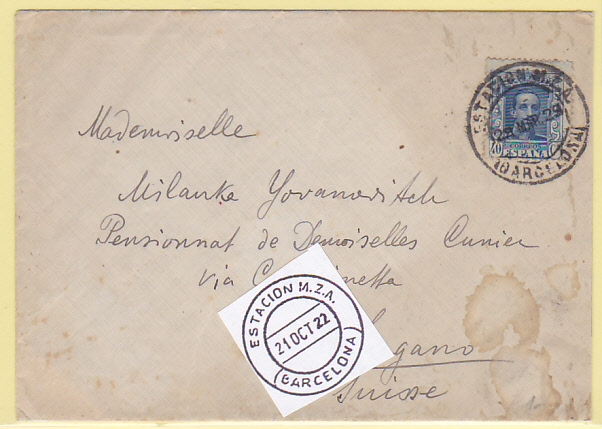 ESTACION M.Z.A.
(BARCELONA)
40 ESPAÑA
Mademoiselle
Milanka Yovanovitch
Pensionnat de Demoiselles Cunier
Via C netta
gano
Suisse
ESTACION M.Z.A.
21 OCT 22
(BARCELONA)